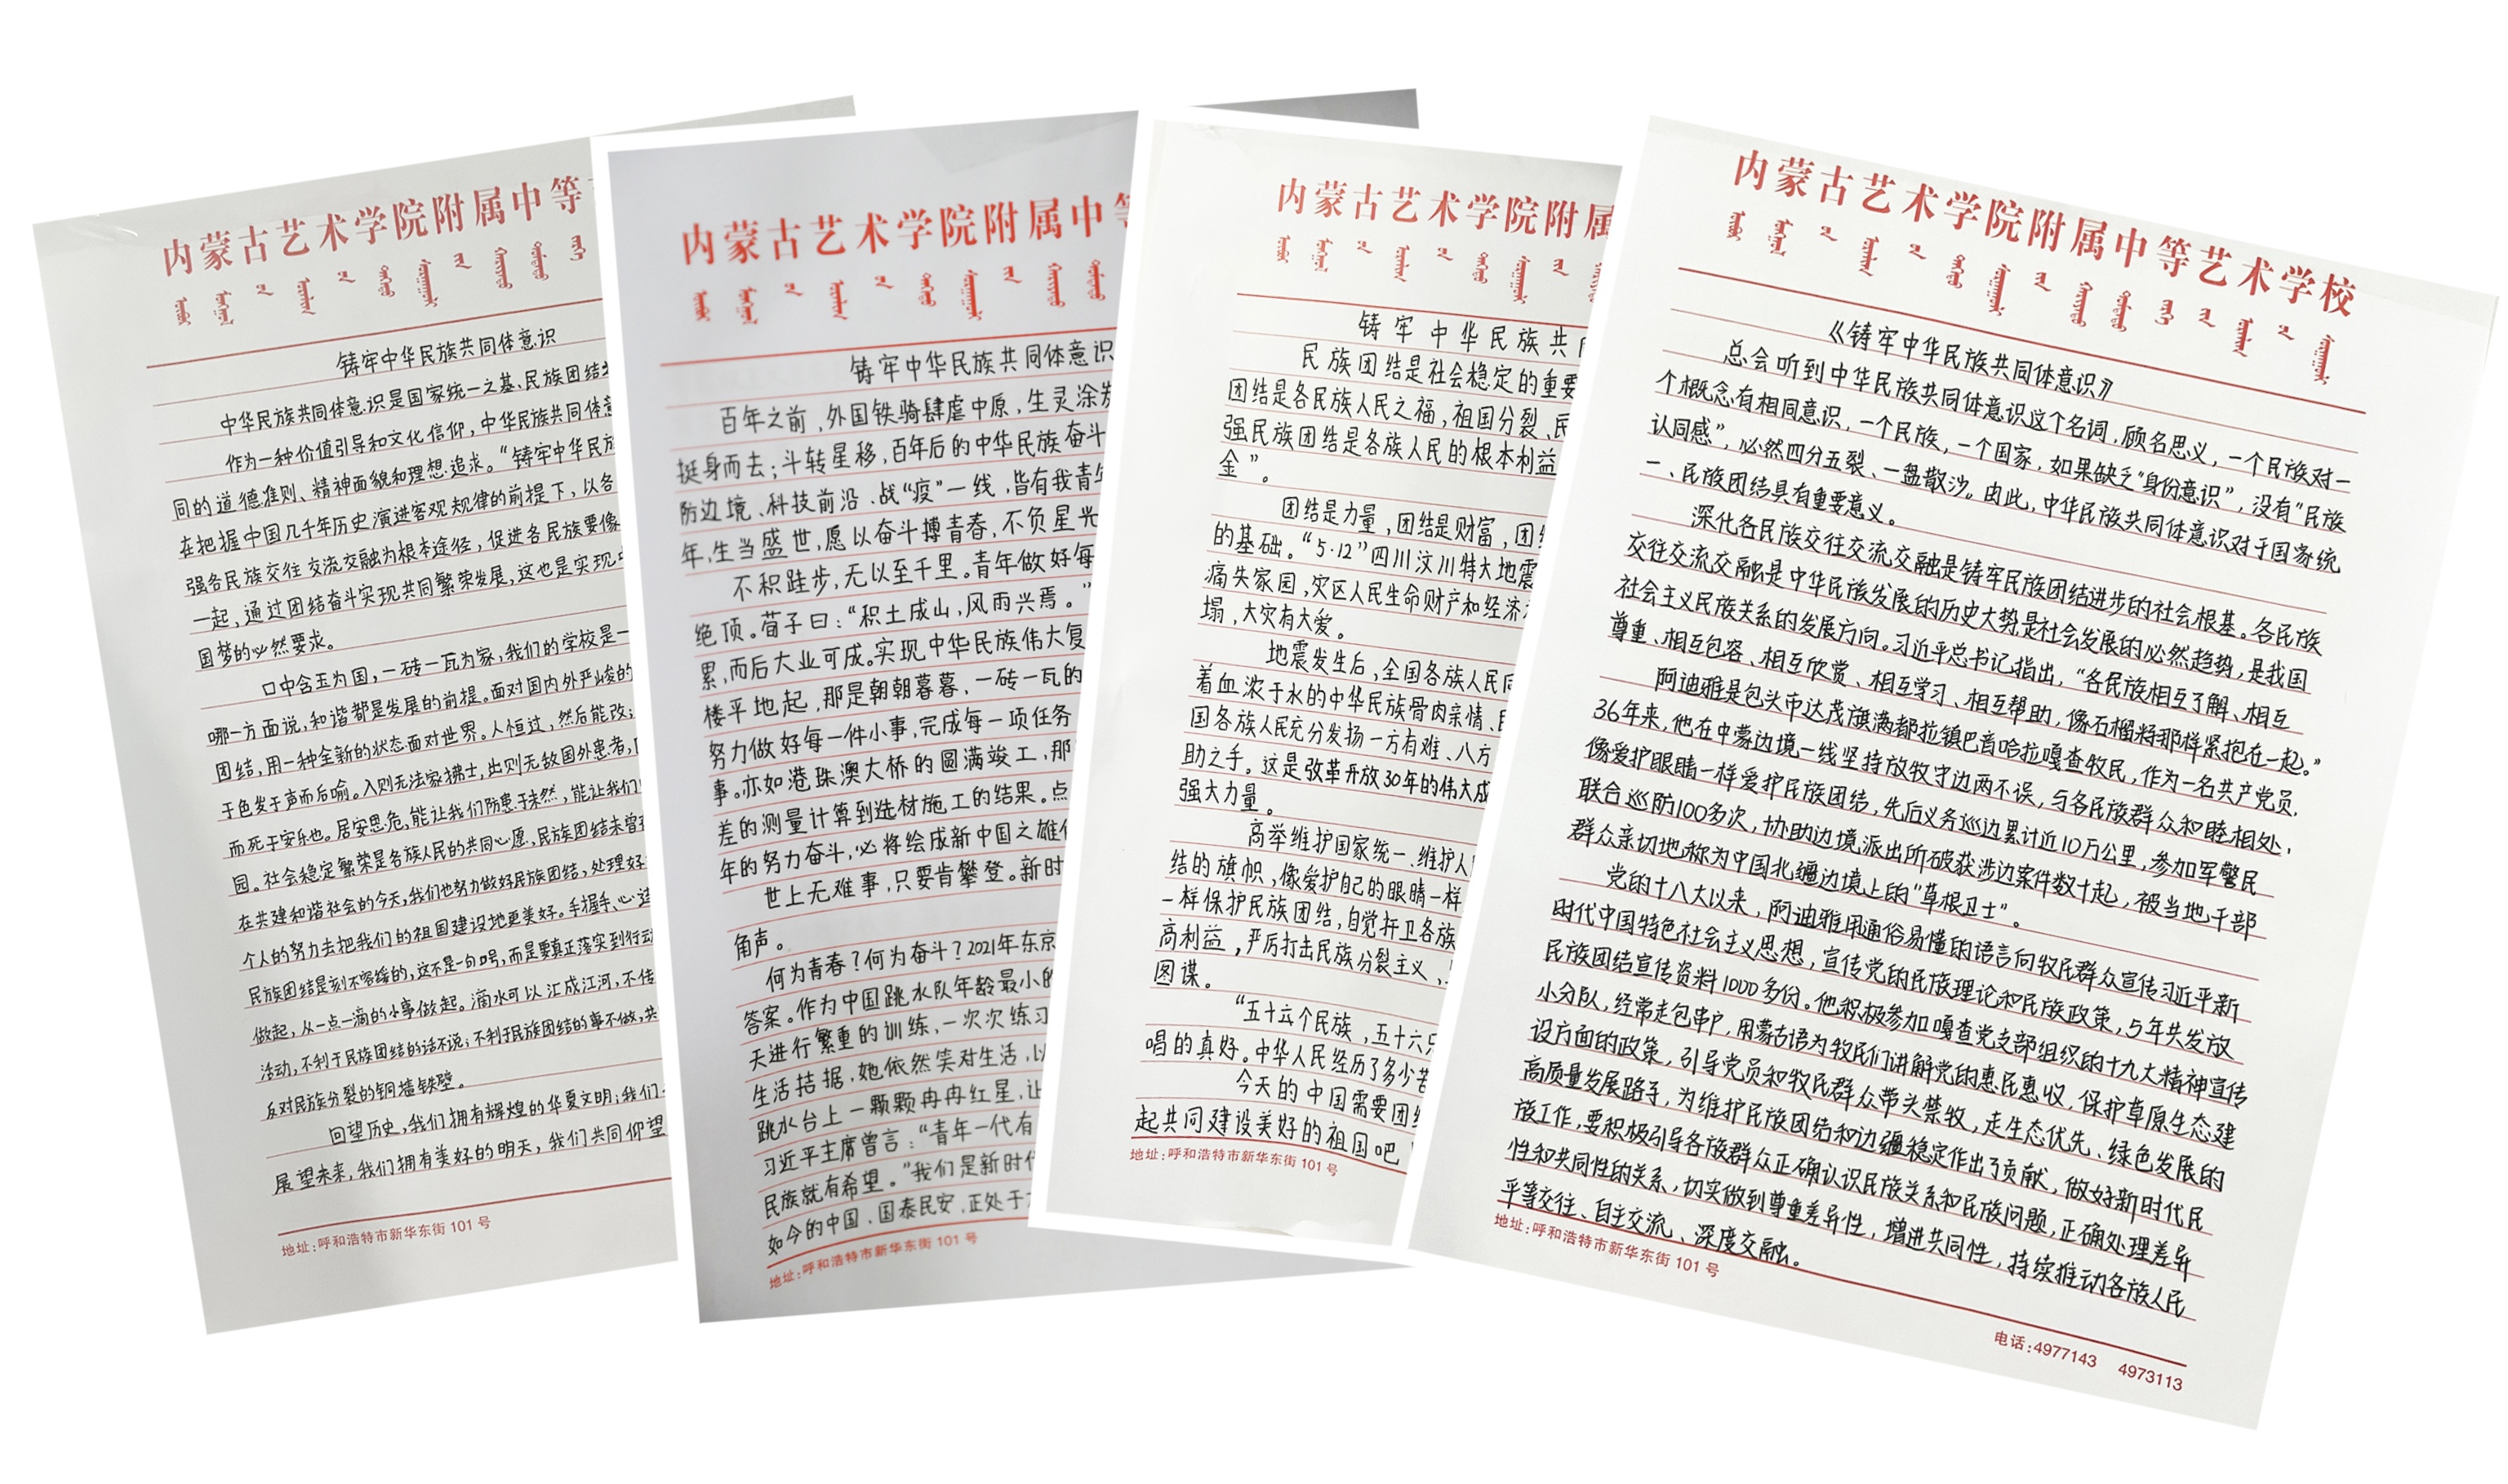 内蒙古艺术学院附属中等
铸牢中华民族共同体意识
中华民族共同体意识是国家统一之基、民族团结
作为一种价值引导和文化信仰，中华民族共同体意
同的道德准则、精神面貌和理想追求。“铸牢中华民族
在把握中国几千年历史演进客观规律的前提下，以各
强各民族交往交流交融为根本途径，促进各民族要像
一起，通过团结奋斗实现共同繁荣发展，这也是实现中
国梦的必然要求。
口中含玉为国，一砖一瓦为家，我们的学校是一
哪一方面说，和谐都是发展的前提。面对国内外严峻的
团结，用一种全新的状态面对世界。人恒过，然后能改；
于色发于声而后喻。入则无法家拂士，出则无敌国外患者，
而死于安乐也。居安思危，能让我们防患于未然，能让我们
园。社会稳定繁荣是各族人民的共同心愿，民族团结未曾
在共建和谐社会的今天，我们也努力做好民族团结，处理好
个人的努力去把我们的祖国建设地更美好。手握手、心连
民族团结是刻不容缓的，这不是一句口号，而是要真正落实到行动
做起，从一点一滴的小事做起。滴水可以汇成江河，不传
活动，不利于民族团结的话不说；不利于民族团结的事不做，共
反对民族分裂的铜墙铁壁。
回望历史，我们拥有辉煌的华夏文明；我们
展望未来，我们拥有美好的明天，我们共同仰望
地址：呼和浩特市新华东街 101 号
内蒙古艺术学院附属中等
铸牢中华民族共同体意识
百年之前，外国铁骑肆虐中原，生灵涂炭
挺身而去；斗转星移，百年后的中华民族奋斗
防边境、科技前沿、战“疫”一线，皆有我青年
年，生当盛世，愿以奋斗搏青春，不负星光
不积跬步，无以至千里。青年做好每
绝顶。荀子曰：“积土成山，风雨兴焉。”
累，而后大业可成。实现中华民族伟大复
楼平地起，那是朝朝暮暮，一砖一瓦的
努力做好每一件小事，完成每一项任务
事。亦如港珠澳大桥的圆满竣工，那
差的测量计算到选材施工的结果。点
年的努力奋斗，必将绘成新中国之雄伟
世上无难事，只要肯攀登。新时
角声。
何为青春？何为奋斗？2021年东京
答案。作为中国跳水队年龄最小的
天进行繁重的训练，一次次练习
生活拮据，她依然笑对生活，以
跳水台上一颗颗冉冉红星，让
习近平主席曾言：“青年一代有
民族就有希望。”我们是新时代
如今的中国，国泰民安，正处于
地址：呼和浩特市新华东街 101 号
内蒙古艺术学院附属
铸牢中华民族共同
民族团结是社会稳定的重要
团结是各民族人民之福，祖国分裂、民
强民族团结是各族人民的根本利益
金”。
团结是力量，团结是财富，团结
的基础。“5·12”四川汶川特大地震
痛失家园，灾区人民生命财产和经济
塌，大灾有大爱。
地震发生后，全国各族人民同
着血浓于水的中华民族骨肉亲情、民
国各族人民充分发扬一方有难、八方
助之手。这是改革开放30年的伟大成
强大力量。
高举维护国家统一、维护人民
结的旗帜，像爱护自己的眼睛一样
一样保护民族团结，自觉扞卫各族
高利益，严厉打击民族分裂主义、
图谋。
“五十六个民族，五十六只
唱的真好。中华人民经历了多少苦
今天的中国需要团结
起共同建设美好的祖国吧！
地址：呼和浩特市新华东街 101 号
内蒙古艺术学院附属中等艺术学校
《铸牢中华民族共同体意识》
总会听到中华民族共同体意识这个名词，顾名思义，一个民族对一
个概念有相同意识，一个民族，一个国家，如果缺乏“身份意识”，没有“民族
认同感”，必然四分五裂、一盘散沙。由此，中华民族共同体意识对于国家统
一、民族团结具有重要意义。
深化各民族交往交流交融是铸牢民族团结进步的社会根基。各民族
交往交流交融是中华民族发展的历史大势，是社会发展的必然趋势，是我国
社会主义民族关系的发展方向。习近平总书记指出，“各民族相互了解、相互
尊重、相互包容、相互欣赏、相互学习、相互帮助，像石榴籽那样紧抱在一起。”
阿迪雅是包头市达茂旗满都拉镇巴音哈拉嘎查牧民，作为一名共产党员，
36年来，他在中蒙边境一线坚持放牧守边两不误，与各民族群众和睦相处，
像爱护眼睛一样爱护民族团结，先后义务巡边累计近10万公里，参加军警民
联合巡防100多次，协助边境派出所破获涉边案件数十起，被当地干部
群众亲切地称为中国北疆边境上的“草根卫士”。
党的十八大以来，阿迪雅用通俗易懂的语言向牧民群众宣传习近平新
时代中国特色社会主义思想，宣传党的民族理论和民族政策，5年共发放
民族团结宣传资料1000多份。他积极参加嘎查党支部组织的十九大精神宣传
小分队，经常走包串户，用蒙古语为牧民们讲解党的惠民惠牧、保护草原生态建
设方面的政策，引导党员和牧民群众带头禁牧，走生态优先、绿色发展的
高质量发展路子，为维护民族团结和边疆稳定作出了贡献，做好新时代民
族工作，要积极引导各族群众正确认识民族关系和民族问题，正确处理差异
性和共同性的关系，切实做到尊重差异性，增进共同性，持续推动各族人民
平等交往、自主交流、深度交融。
地址：呼和浩特市新华东街 101 号
电话：4977143 4973113